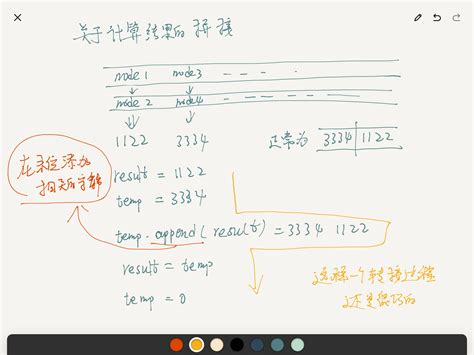 关于计算结果的拼接
node 1 node 3 - - - -
node 2 node 4 - - - - - -
1122 3334
正常为 3334 | 1122
在末位添加
result = 1122
temp = 3334
temp.append(result) = 3334 1122
result = temp
temp = 0
这样一个转接过程
还是蛮巧的